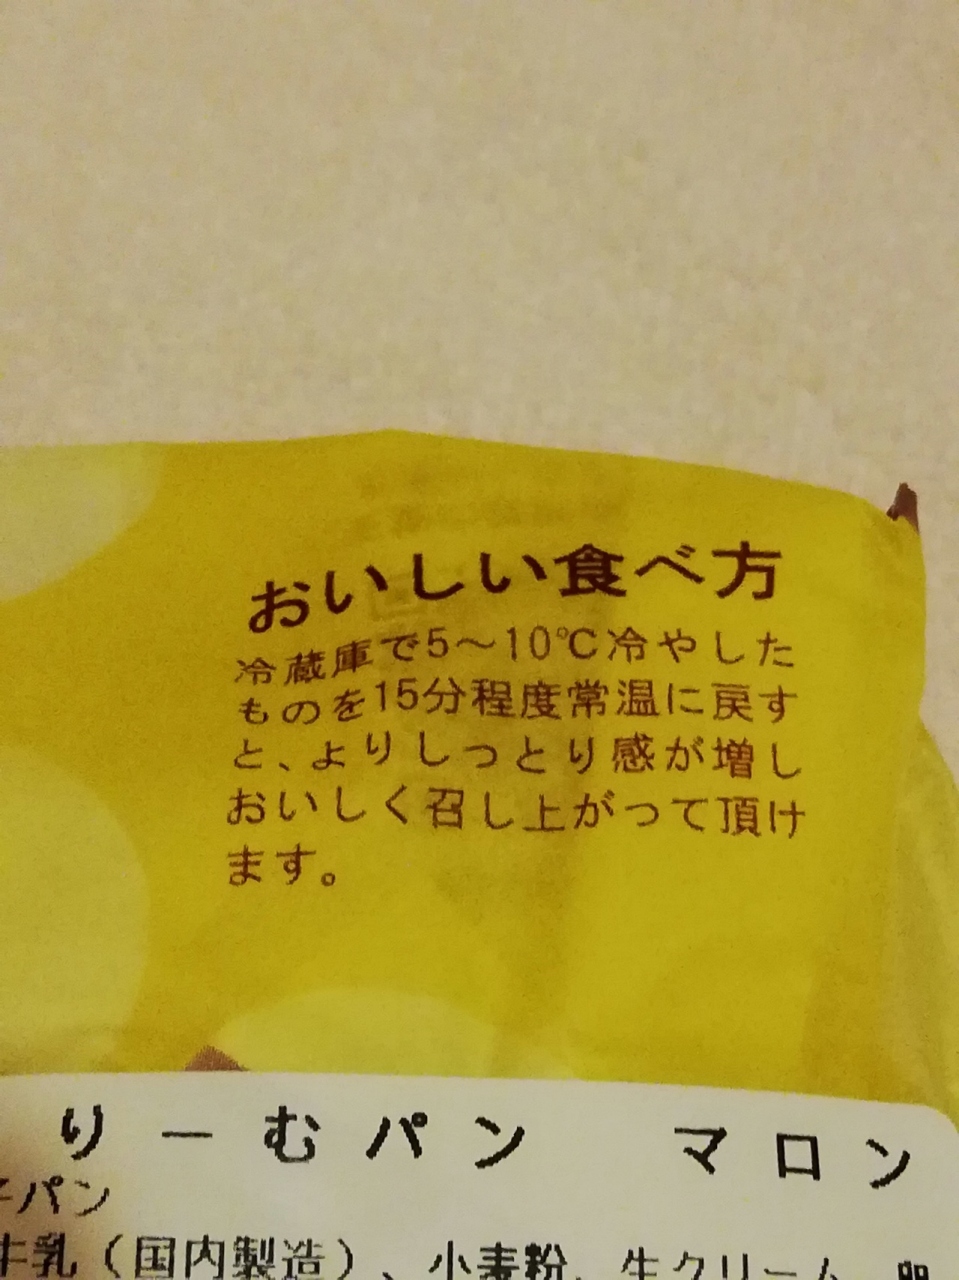 おいしい食べ方
冷蔵庫で5～10℃冷やした
ものを15分程度常温に戻す
と、よりしっとり感が増し
おいしく召し上がって頂け
ます。
りーむパン　マロン
パン
牛乳（国内製造）、小麦粉、生クリーム、卵